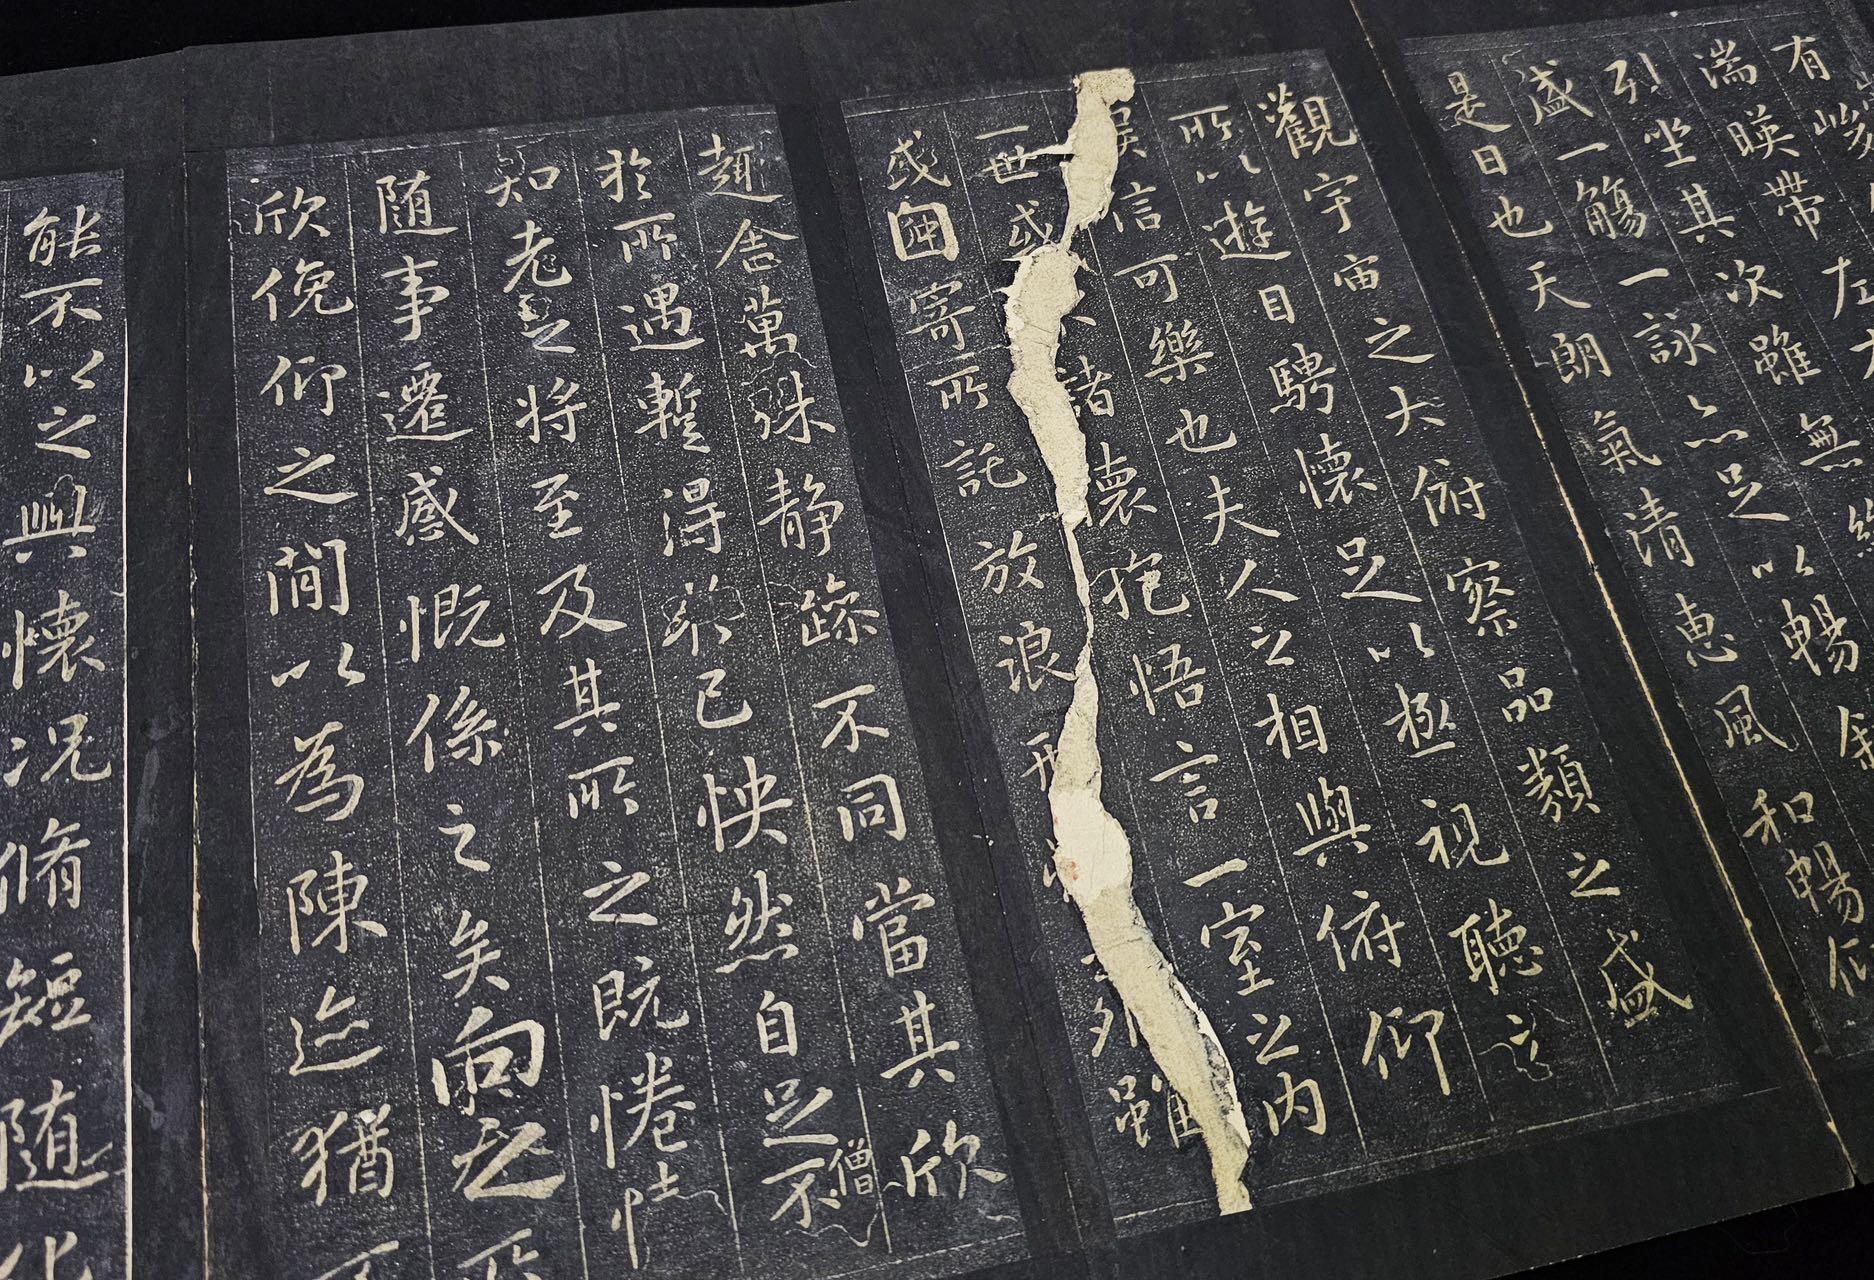 有峻
湍暎帶左
引坐其次雖無
盛一觴一詠亦足以暢
是日也天朗氣清惠風和暢仰
觀宇宙之大俯察品類之盛
所以遊目騁懷足以極視聽之
娛信可樂也夫人之相與俯仰
一世或諸懷抱悟言一室之内
或因寄所託放浪形外雖
趣舍萬殊静躁不同當其欣
於所遇暫得於己怏然自足不
僧
知老之將至及其所之既惓情
随事遷感慨係之矣向之所
欣俛仰之間以為陳迹猶不
能不以之興懷况脩短随化